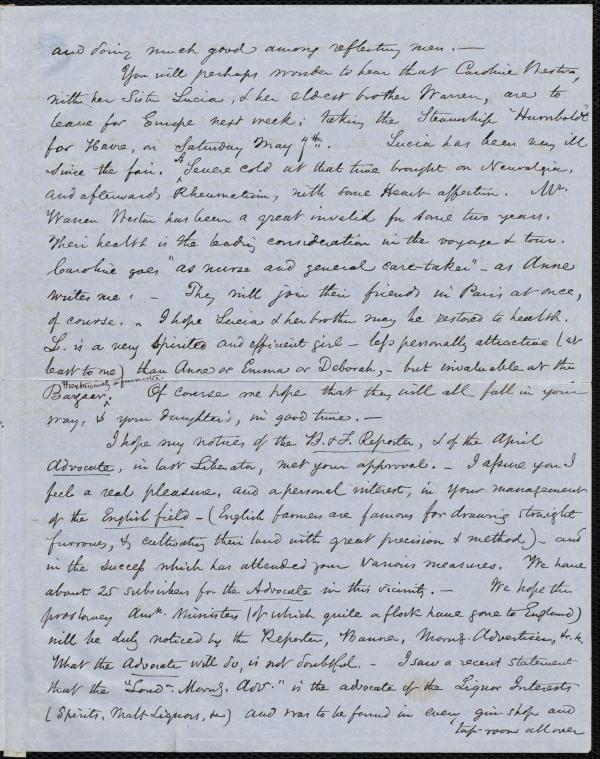 and doing much good among reflecting men. —
You will perhaps wonder to hear that Caroline Weston,
with her Sister Lucia, & her eldest brother Warren, are to
leave for Europe next week; taking the Steamship "Humboldt"
for Havre, on Saturday May 7th. Lucia has been very ill
since the fair. A Severe cold at that time brought on Neuralgia,
and afterwards Rheumatism, with some Heart affection. Mr.
Warren Weston has been a great invalid for some two years.
Their health is the leading consideration in the voyage & tour.
Caroline goes "as nurse and general care-taker" – as Anne
writes me. – They will join their friends in Paris at once,
of course. – I hope Lucia & her brother may be restored to health.
L. is a very spirited and efficient girl – less personally attractive (at
least to me) than Anne or Emma or Deborah, – but invaluable at the
Bazaar. Of course we hope that they will all fall in your
way, & your daughter's, in good time. —
I hope my notices of the B. & F. Reporter, & of the April
Advocate, in last Liberator, met your approval. – I assure you I
feel a real pleasure, and a personal interest, in your management
of the English field – (English farmers are famous for drawing straight
furrows, & cultivating their land with great precision & method) – and
in the success which has attended your various measures. We have
about 25 subscribers for the Advocate in this vicinity. – We hope the
proslavery Amn. Ministers (of which quite a flock have gone to England)
will be duly noticed by the Reporter, Banner, Morng. Advertiser, &c. &c.
What the Advocate will do, is not doubtful. – I saw a recent statement
that the "Lond. Morng. Adv." is the advocate of the Liquor Interests
(Spirits, Malt Liquors, &c) and was to be found in every gin shop and
tap-room all over